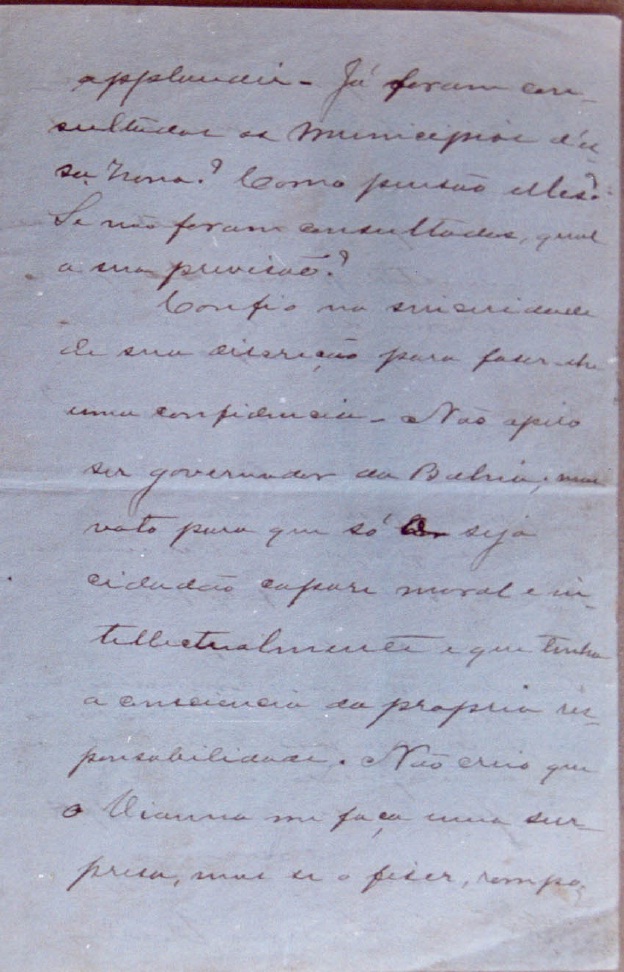 applaudir - Já foram con-
sultados os Municipios d'es-
sa zona? Como pensão elles?
Se não foram consultados, qual
a sua previsão?
Confio na sinceridade
de sua discreção para faser-lhe
uma confidencia - Não
ser governador da Bahia; mas
voto para que só o seja
cidadão capaz moral e in-
tellectualmente e que tenha
a consciencia da propria res-
ponsabilidade. Não creio que
o Vianna me faça uma sur-
presa, mas se o fiser, rompo,